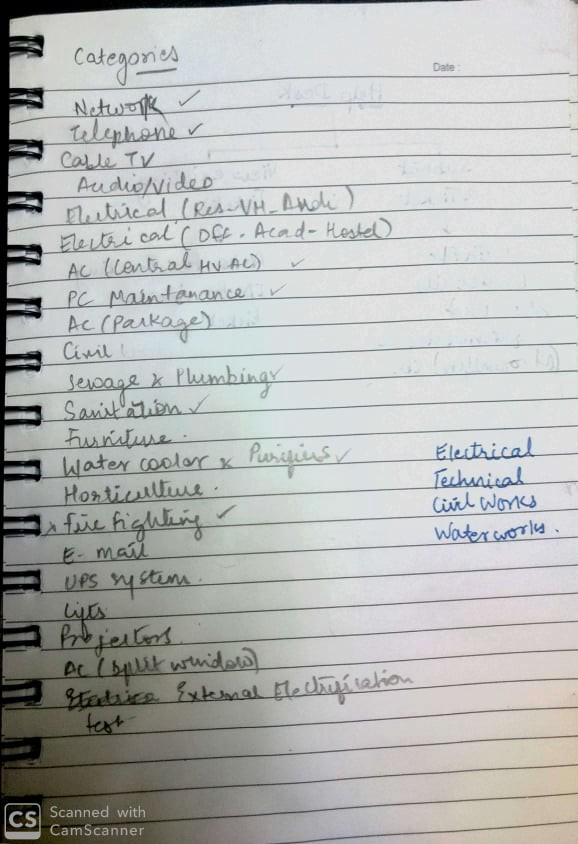 Categories
Date :
Network ✓
Telephone ✓
Cable TV
Audio/video
Electrical (Res-VH-Audi)
Electrical (Off - Acad - Hostel)
AC (Central HVAC) ✓
PC Maintanance ✓
Ac (Package)
Civil
Sewage & Plumbing ✓
Sanitation ✓
Furniture .
Water cooler & Purifiers ✓
Horticulture .
x fire fighting ✓
E-mail
UPS system .
Lifts
Projectors
AC (Split window)
External Electrification
test
Electrical
Technical
Civil Works
Water works .
CS Scanned with
CamScanner